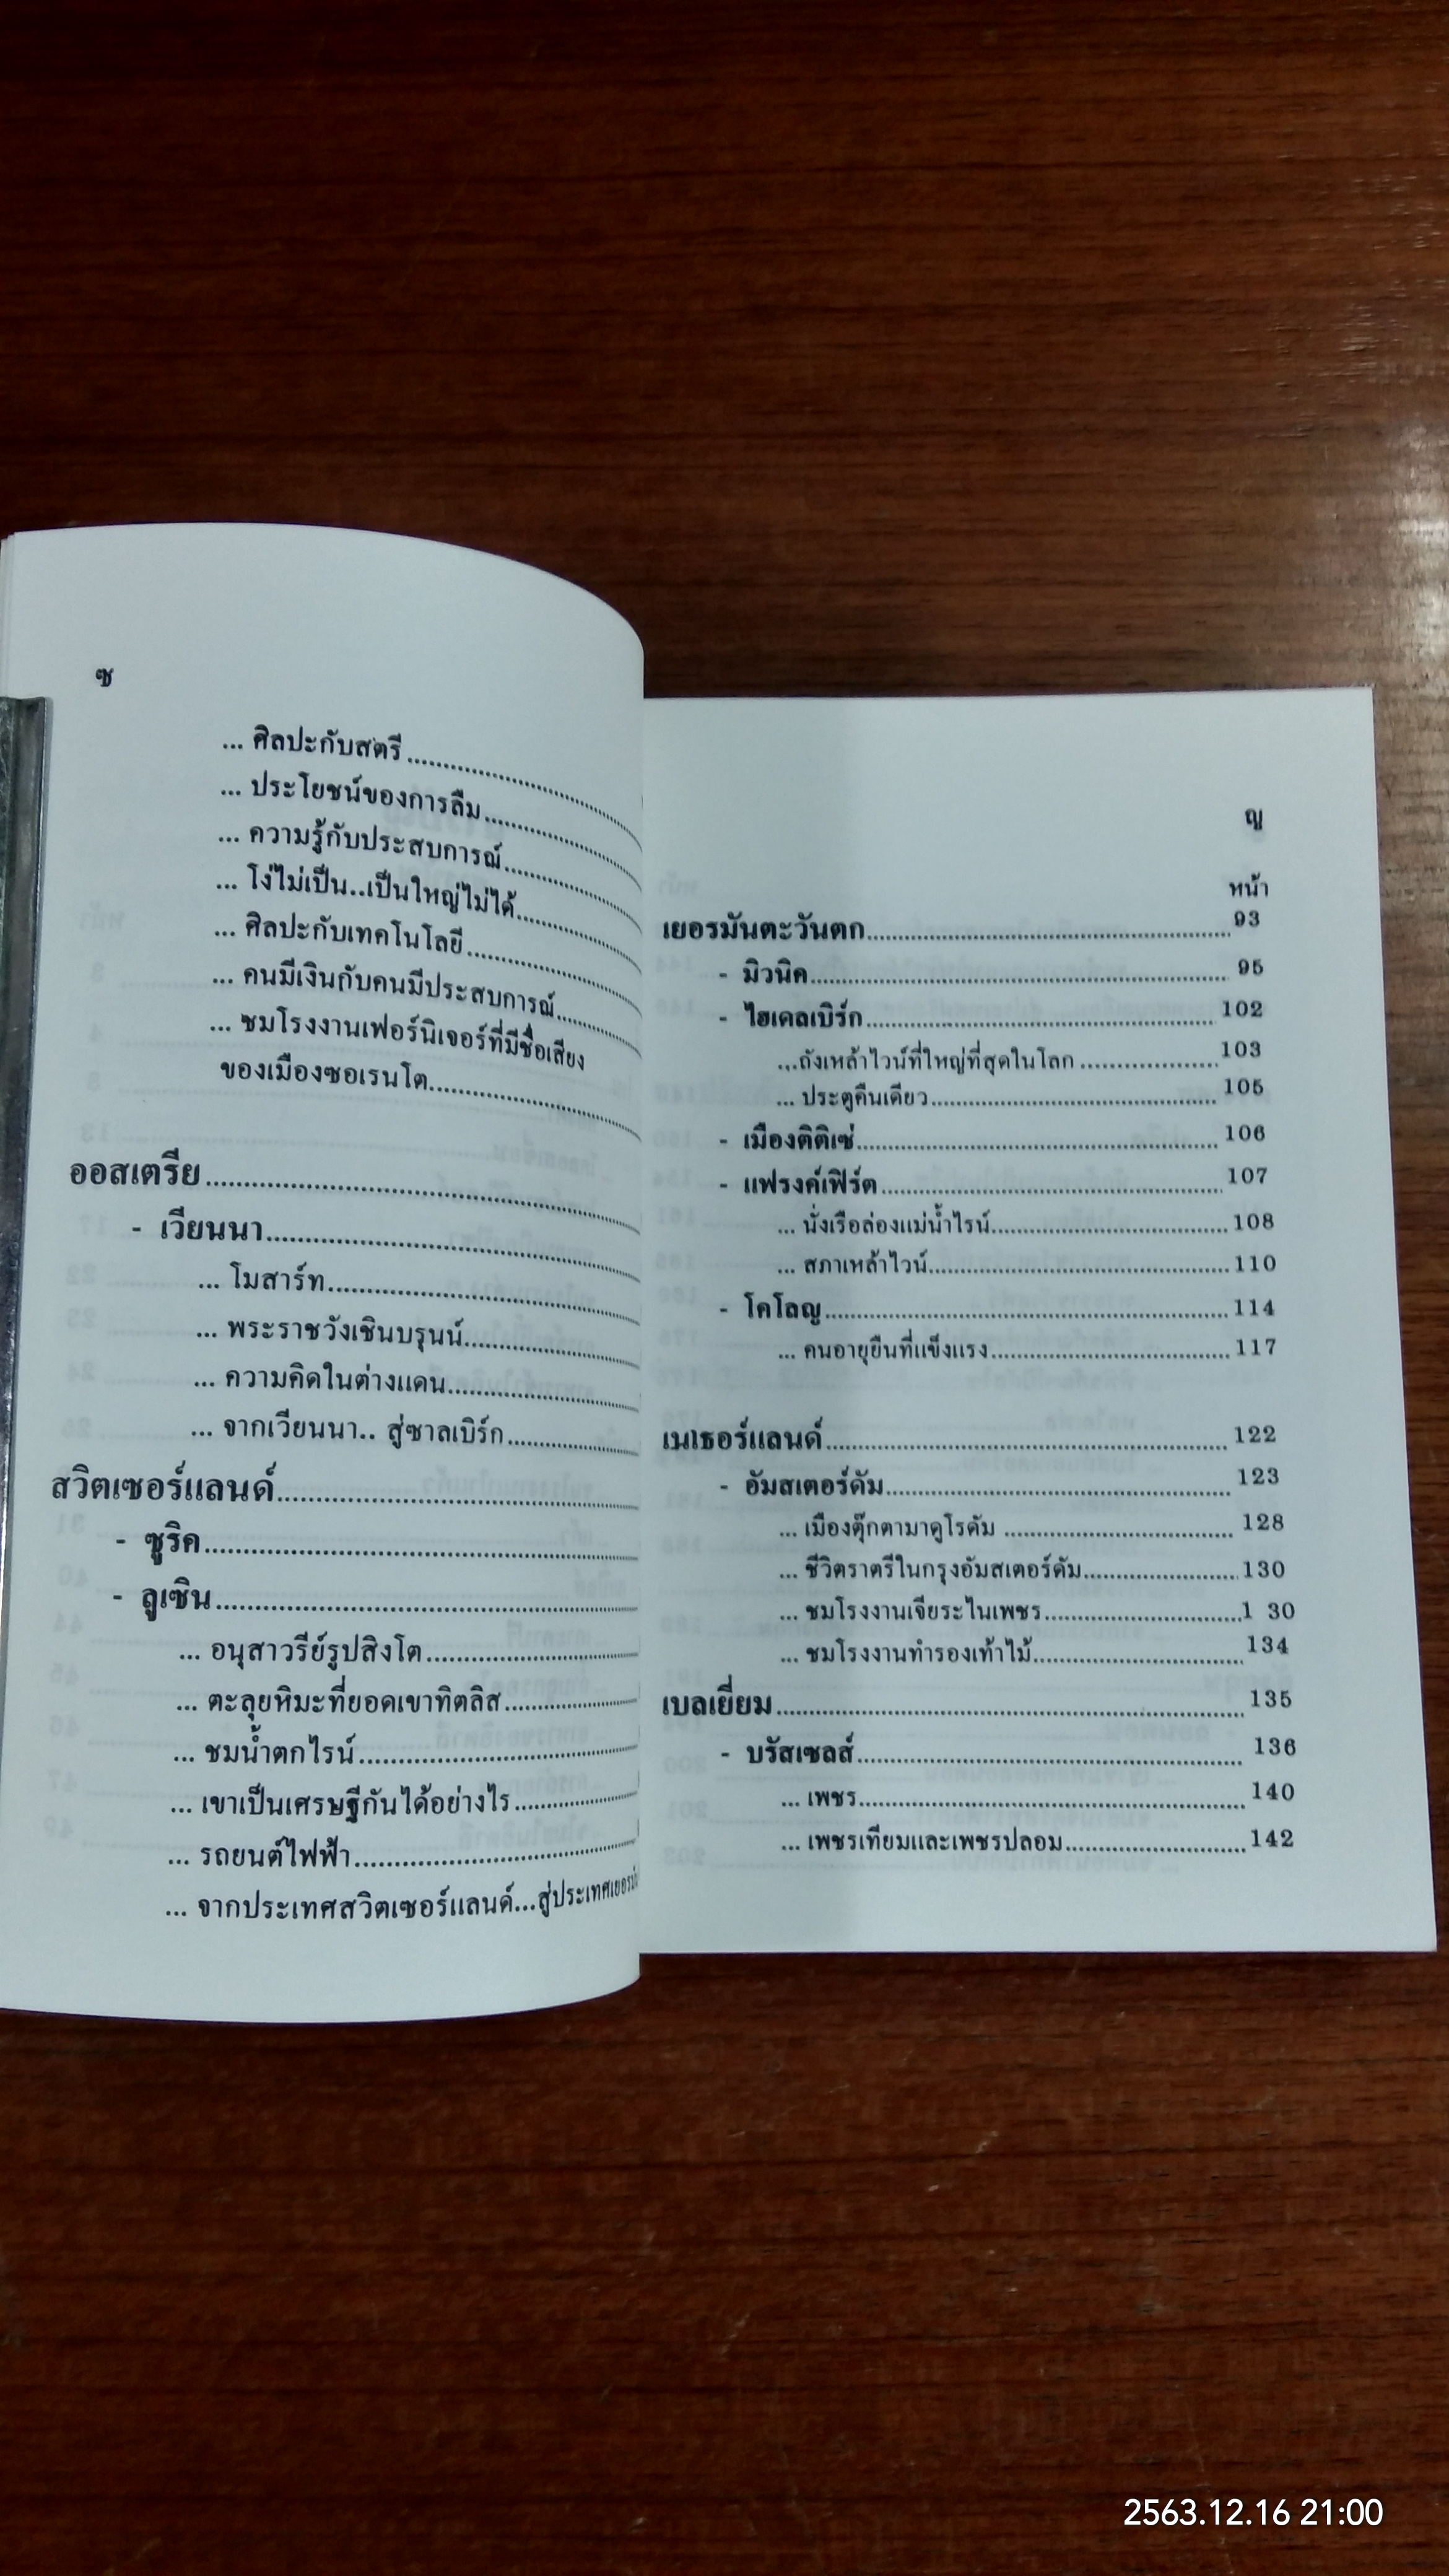 ซ
... ศิลปะกับสตรี
... ประโยชน์ของการลืม
... ความรู้กับประสบการณ์
... โง่ไม่เป็น..เป็นใหญ่ไม่ได้
... ศิลปะกับเทคโนโลยี
... คนมีเงินกับคนมีประสบการณ์
... ชมโรงงานเฟอร์นิเจอร์ที่มีชื่อเสียง
ของเมืองซอเรนโต
ออสเตรีย
- เวียนนา
... โมสาร์ท
... พระราชวังเชินบรุนน์
... ความคิดในต่างแดน
... จากเวียนนา.. สู่ซาลเบิร์ก
สวิตเซอร์แลนด์
- ซูริค
- ลูเซิน
... อนุสาวรีย์รูปสิงโต
... ตะลุยหิมะที่ยอดเขาทิตลิส
... ชมน้ำตกไรน์
... เขาเป็นเศรษฐีกันได้อย่างไร
... รถยนต์ไฟฟ้า
... จากประเทศสวิตเซอร์แลนด์...สู่ประเทศ
ญ
หน้า
เยอรมันตะวันตก 93
- มิวนิค 95
- ไฮเดลเบิร์ก 102
...ถังเหล้าไวน์ที่ใหญ่ที่สุดในโลก 103
... ประตูคืนเดียว 105
- เมืองติติเซ่ 106
- แฟรงค์เฟิร์ต 107
... นั่งเรือล่องแม่น้ำไรน์ 108
... สภาเหล้าไวน์ 110
- โคโลญ 114
... คนอายุยืนที่แข็งแรง 117
เนเธอร์แลนด์ 122
- อัมสเตอร์ดัม 123
... เมืองตุ๊กตามาดูโรดัม 128
... ชีวิตราตรีในกรุงอัมสเตอร์ดัม 130
... ชมโรงงานเจียระไนเพชร 1 30
... ชมโรงงานทำรองเท้าไม้ 134
เบลเยี่ยม 135
- บรัสเซลส์ 136
... เพชร 140
... เพชรเทียมและเพชรปลอม 142
2563.12.16 21:00